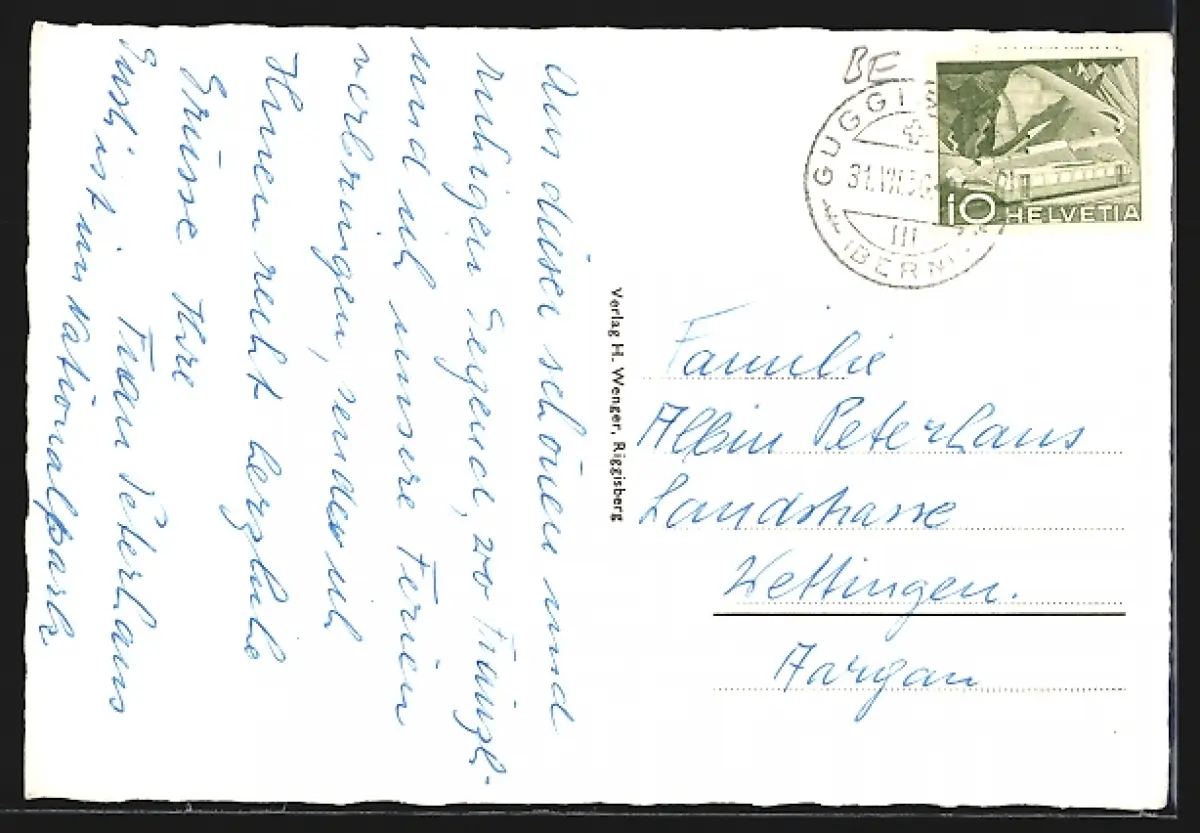 Aus dieser schönen und
ruhigen Gegend, wo Fräuzli-
und ich unsere Ferien
verbringen, senden wir
Ihnen recht herzliche
Grüsse Ihre
Frau Peterhans
Gusti ist im Nationalpark.
Verlag H. Wenger, Riggisberg
BE
GUGGI
31.VII.
III
(BERN)
10 HELVETIA
Familie
Albin Peterhans
Landstrasse
Wettingen.
Aargau